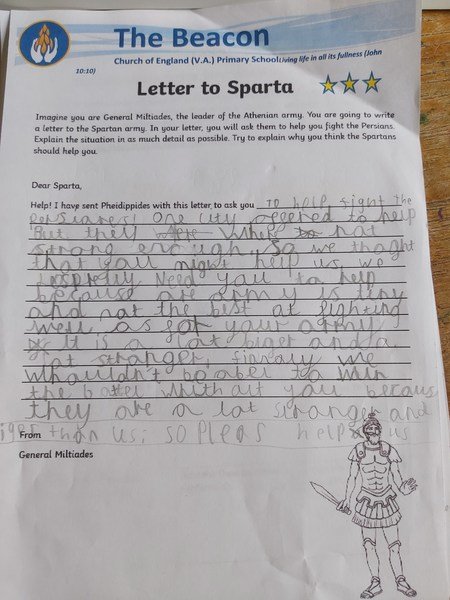 The Beacon
Church of England (V.A.) Primary School Living life in all its fullness (John
10:10)
Letter to Sparta
Imagine you are General Miltiades, the leader of the Athenian army. You are going to write
a letter to the Spartan army. In your letter, you will ask them to help you fight the Persians.
Explain the situation in as much detail as possible. Try to explain why you think the Spartans
should help you.
Dear Sparta,
Help! I have sent Pheidippides with this letter to ask you to help fight the
one city offered to help
But they not
strong enough, So we thoght
that you might help us, we
need you to help
because are army is tiny
and not the best at fighting
well, as for your army
it is a lot biger and a
lot stronger, finaly we
whouldn't be abel to win
the batel without you becaus
they are a lot stronger and
than us; so pleas help us
From
General Miltiades